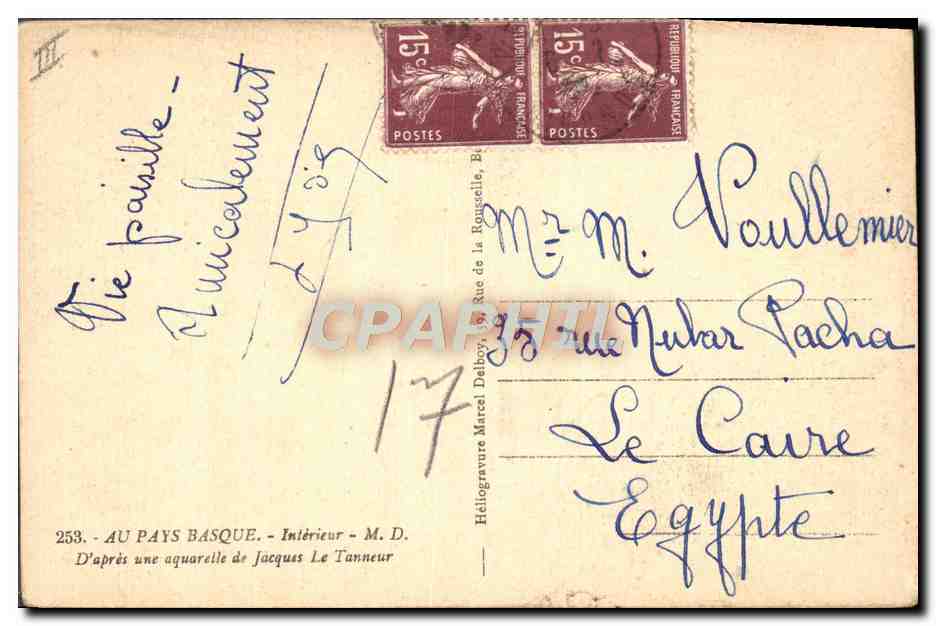 III
Vie paisible -
Amicalement
15c
REPUBLIQUE FRANÇAISE
POSTES
15c
REPUBLIQUE FRANÇAISE
POSTES
Mr M. Voullemier
35 rue Nubar Pacha
Le Caire
Egypte
17
CPAPHIL
Héliogravure Marcel Delboy, 39, Rue de la Rousselle,
253. - AU PAYS BASQUE. - Intérieur - M. D.
D'après une aquarelle de Jacques Le Tanneur